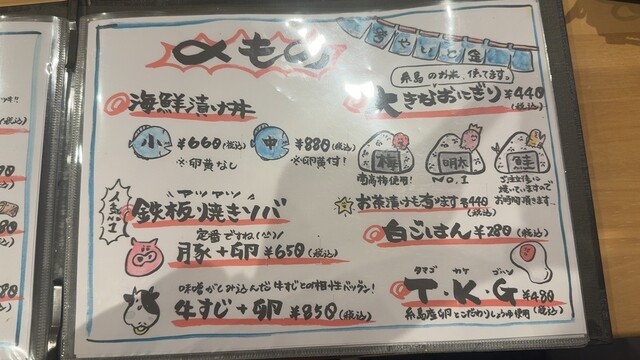 〆もの
海鮮漬け丼
小 ¥660(税込)
※卵黄なし
中 ¥880(税込)
※卵黄付!
人気No.1
アツアツ
鉄板焼きソバ
定番ですね(^^)
豚+卵 ¥650(税込)
味噌がしみ込んだ牛すじとの相性バツグン!
牛すじ+卵 ¥850(税込)
糸島のお米、使てます。
大きなおにぎり ¥440
(税込)
梅
南高梅使用!
明太
No.1
鮭
ご注文後に
焼いていますので
お時間頂きます…
お茶漬けも有ります ¥440
(税込)
白ごはん ¥280(税込)
タマゴ カケ ゴハン
T・K・G ¥480
(税込)
糸島産卵とこだわりしょうゆ使用